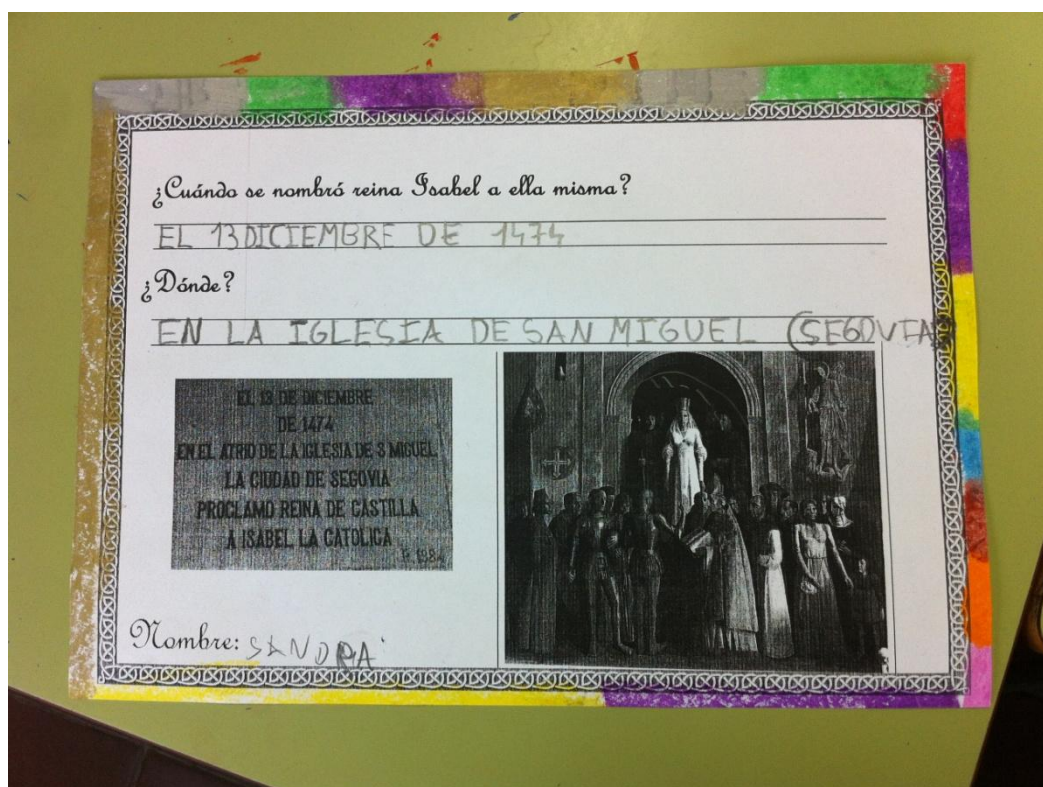 ¿Cuándo se nombró reina Isabel a ella misma?
EL 13 DICIEMBRE DE 1474
¿Dónde?
EN LA IGLESIA DE SAN MIGUEL (SEGOVIA)
EL 13 DE DICIEMBRE
DE 1474
EN EL ATRIO DE LA IGLESIA DE S MIGUEL
LA CIUDAD DE SEGOVIA
PROCLAMO REINA DE CASTILLA
A ISABEL LA CATOLICA
Nombre: SANDRA